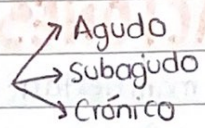 Agudo
Subagudo
Crónico